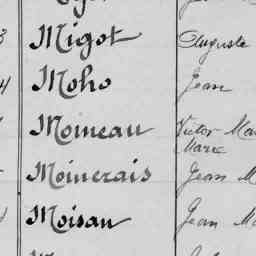 Migot Auguste
Moho Jean
Moineau Victor
Marie
Moinerais Jean
Moisan Jean